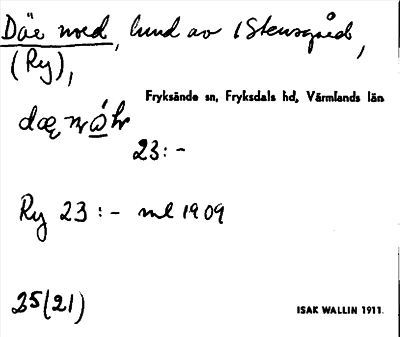 Däe nord, lund av 1 Stensgård,
(Ry),
Fryksände sn, Fryksdals hd, Värmlands län
23:-
Ry 23:- ml 1909
25(21)
ISAK WALLIN 1911.